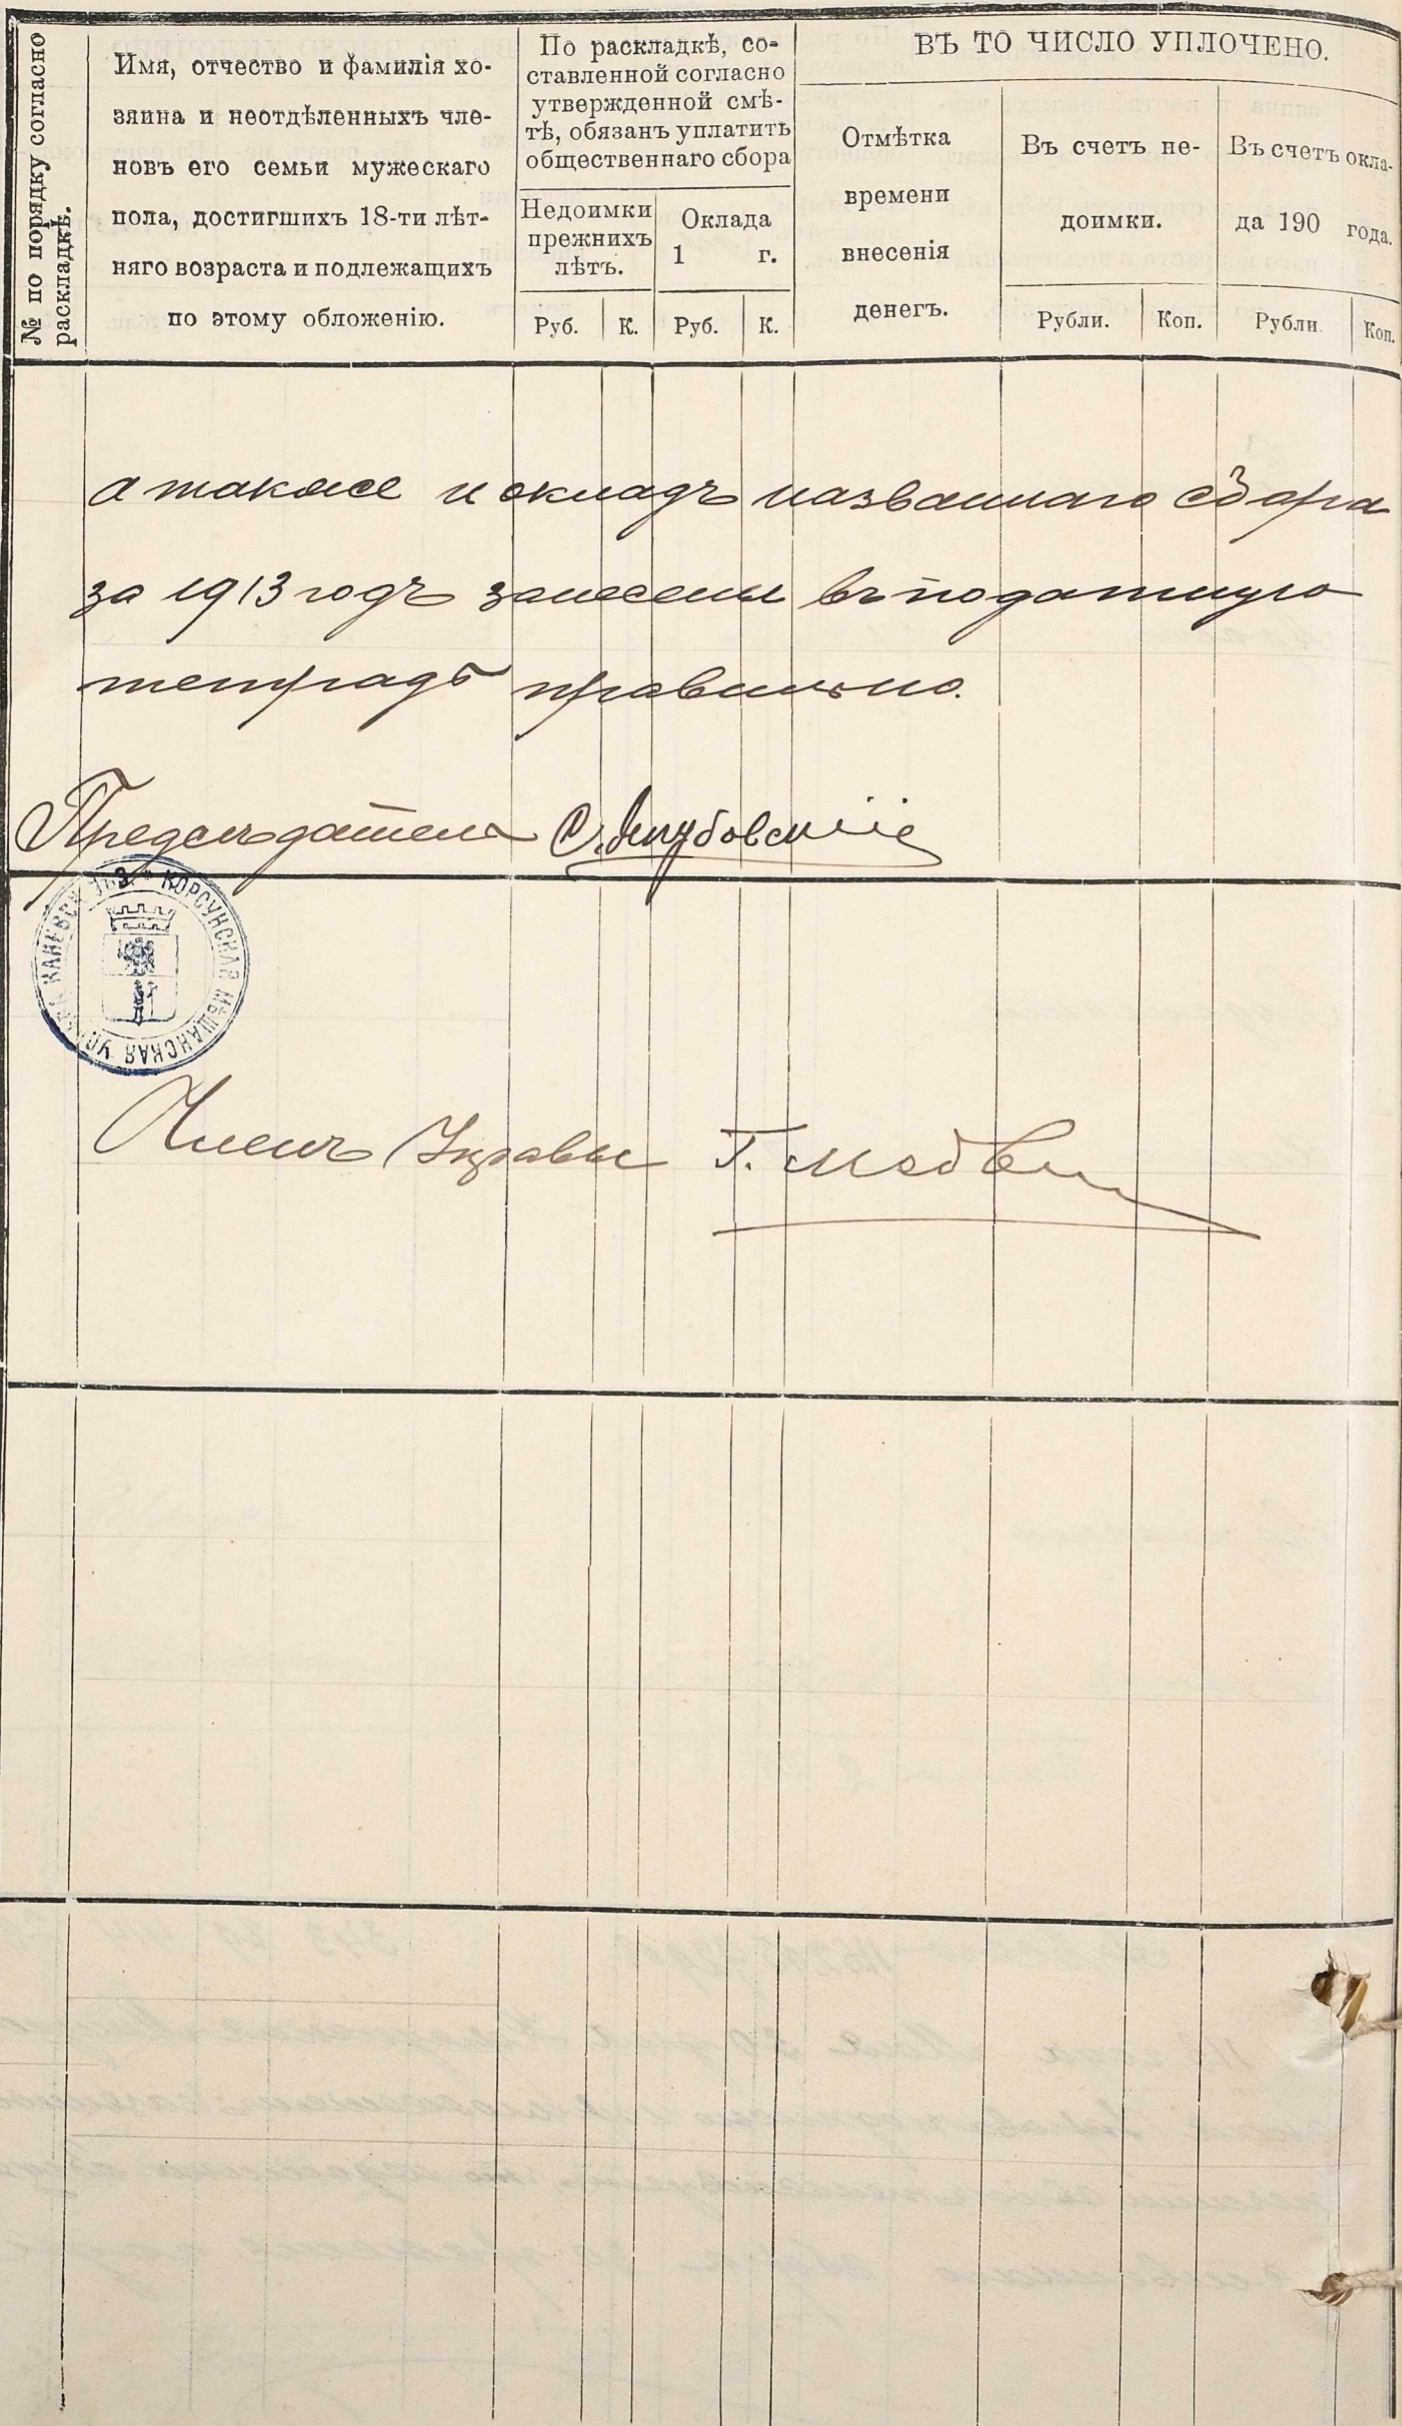 № по порядку согласно
раскладкѣ.
Имя, отчество и фамилія хо-
зяина и неотдѣленныхъ чле-
новъ его семьи мужескаго
пола, достигшихъ 18-ти лѣт-
няго возраста и подлежащихъ
по этому обложенію.
По раскладкѣ, со-
ставленной согласно
утвержденной смѣ-
тѣ, обязанъ уплатить
общественнаго сбора
Недоимки
прежнихъ
лѣтъ.
Оклада
1 г.
Руб. К. Руб. К.
ВЪ ТО ЧИСЛО УПЛОЧЕНО.
Отмѣтка
времени
внесенія
денегъ.
Въ счетъ не-
доимки.
Рубли. Коп.
Въ счетъ окла-
да 190 года.
Рубли Коп.
а также и окладъ названнаго сбора
за 1913 годъ занесены въ податную
тетрадь правильно.
Предсѣдатель
КОРСУНСКАЯ МѢЩАНСКАЯ
Членъ Управы Г.